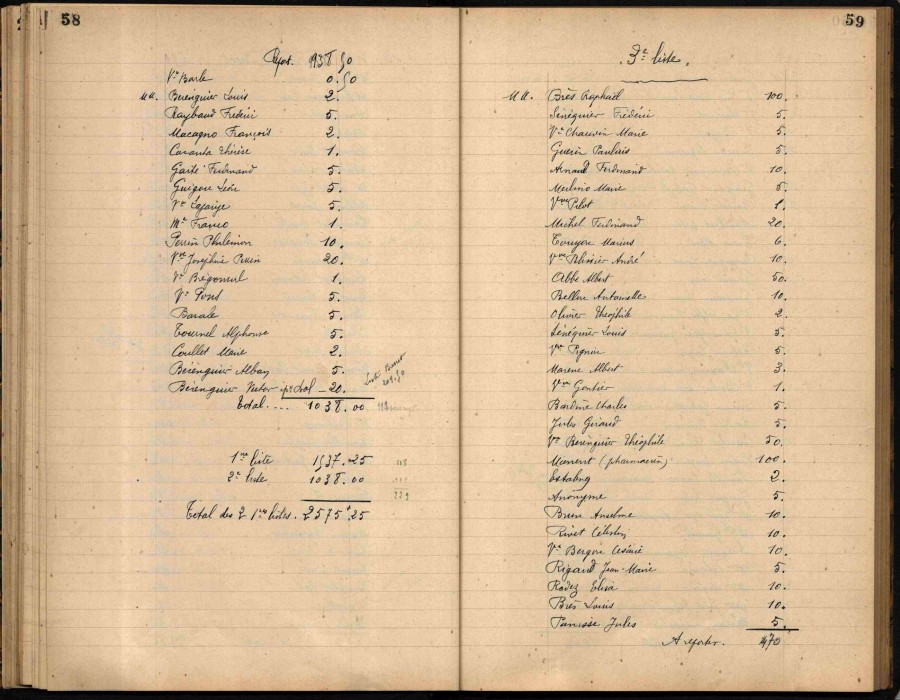 58
Report. 938,50
Vve Barle 0.50
MM. Berenguier Louis 2.
Raybaud Fréderic 5.
Macagno François 2.
Caranta Thérèse 1.
Gasté Ferdinand 5.
Guigou Léon 5.
Vve 5.
Mr Franco 1.
Perrin Philémon 10.
Vve Joséphine Perrin 20.
Vve 1.
Vve Pons 5.
Barale 5.
Tournel Alphonse 5.
Coullet Marie 2.
Bérenguier Alban 5.
Bérenguier Victor 20.
Total.... 1038.00
209.50
1re liste 1537.25
2e liste 1038.00
Total des 2 1res listes. 2575.25
59
3e liste.
MM. Brès Raphaël 100.
Sénéquier Fréderic 5.
Vve Chauvin Marie 5.
Guérin 5.
Arnaud Ferdinand 10.
Merlino Marie 5.
Vve Pilot 1.
Michel Ferdinand 20.
Marius 6.
Vve André 10.
Abbé Albert 50.
Antoinette 10.
Olivier Théophile 2.
Sénéquier Louis 5.
Vve Pignon 5.
Marene Albert 3.
Vve Gontier 1.
Charles 5.
Jules Giraud 5.
Vve Bérenguier Théophile 50.
(pharmacien) 100.
2.
Anonyme 5.
Anselme 10.
Rivet Célestin 10.
Vve 10.
Rigaud Jean-Marie 5.
Rodez Elisa 10.
Brès Louis 10.
Jules 5.
A reporter. 470